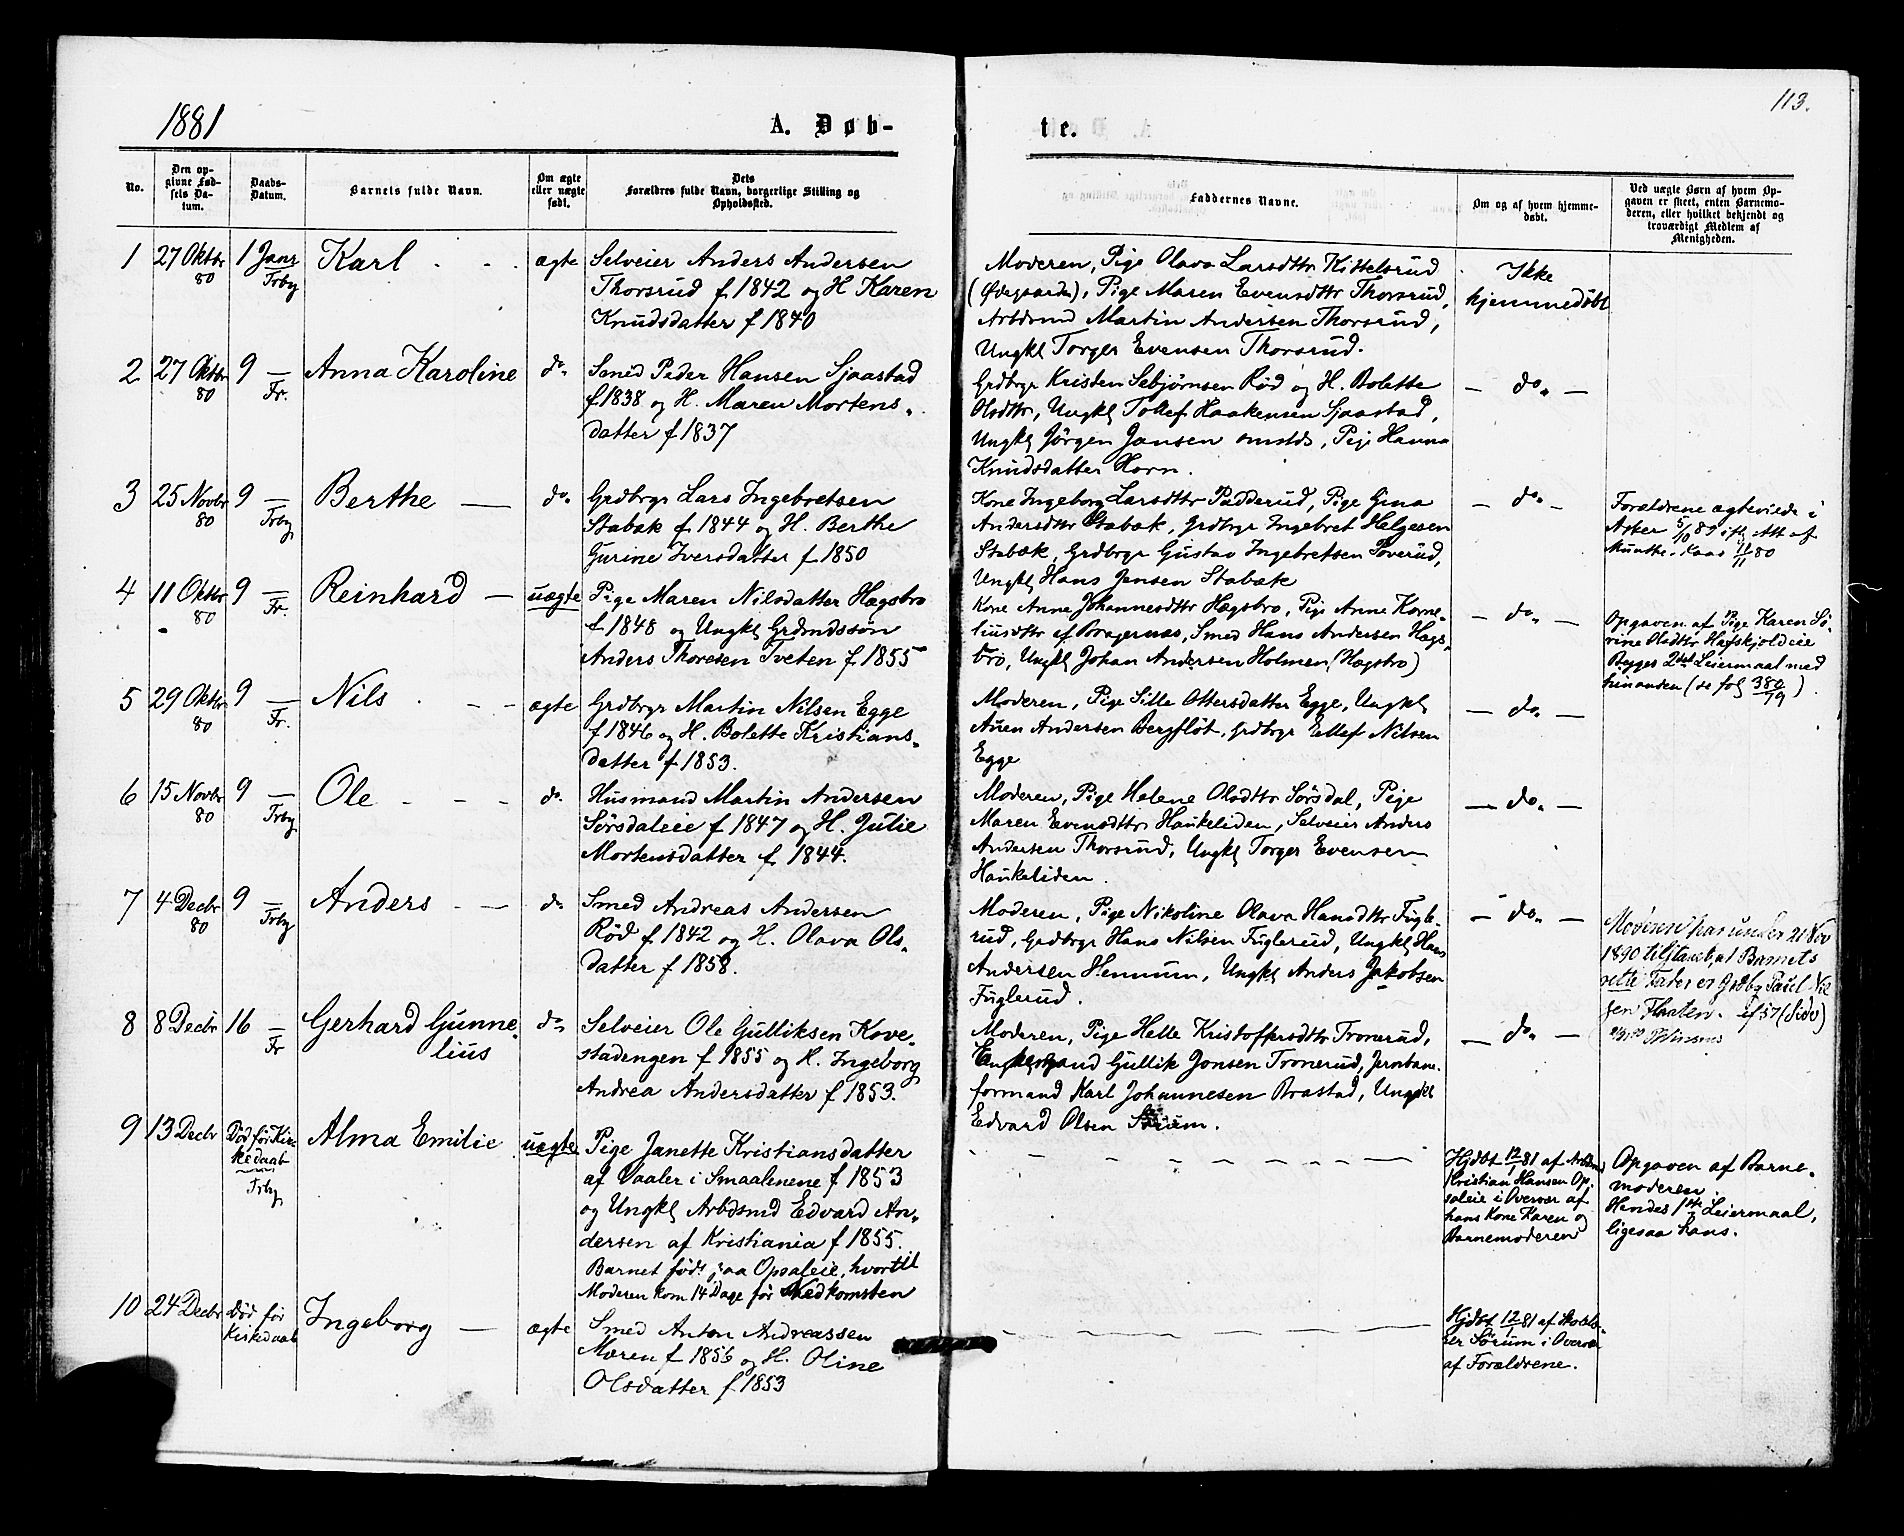 1881
A. Døb-
te.
113.
No.
Den op-
givne Fød-
sels Da-
tum.
Daabs-
Datum.
Barnets fulde Navn.
Om ægte
eller uægte
født.
Dets
Forældres fulde Navn, borgerlige Stilling og
Opholdssted.
Faddernes Navne.
Om og af hvem hjemme-
døbt.
Ved uægte Børn af hvem Op-
gaven er skeet, enten Barnemo-
deren, eller hvilket bekjendt og
troværdigt Medlem af
Menigheden.
1
27 Oktbr
80
1 Janr
Frby
Karl
ægte
Selveier Anders Andersen
Thorsrud f. 1842 og H Karen
Knudsdatter f 1840
Moderen, Pige Olava Larsdttr Kittelsrud
(Ødegaarden), Pige Maren Evensdttr Thorsrud,
Arbdsmd Martin Andersen Thorsrud,
Ungkl Torger Evensen Thorsrud.
Ikke
hjemmedøbt
2
27 Oktbr
80
9 —
Fr.
Anna Karoline
do.
Smed Peder Hansen Sjaastad
f 1838 og H. Maren Mortens-
datter f 1837
Grdbrgr Kristen Sebjørnsen Rød og H. Bolette
Olsdttr, Ungkl Tollef Haakensen Sjaastad,
Ungkl Jörgen Jansen omstds, Pige Hanna
Knudsdatter Horn.
— do. —
3
25 Novbr
80
9 —
Frby
Berthe —
do.
Grdbrgr Lars Ingebretsen
Stabæk f 1844 og H. Berthe
Gurine Iversdatter f 1850
Kone Ingeborg Larsdttr Padderud, Pige Gina
Andersdttr Stabæk, Grdbrgr Ingebret Helgesen
Stabæk, Grdbrgr Gustav Ingebretsen Poverud,
Ungkl Hans Jensen Stabæk
— do. —
Forældrene ægteviede i
Asker 5/10 80 ifl. Att af
Munthe-Kaas 11/11 80
4
11 Oktbr
80
9 —
Fr.
Reinhard —
uægte
Pige Maren Nilsdatter Hægsbro
f 1848 og Ungkl Grdmdssøn
Anders Thoresen Tveten f 1855
Kone Anne Johannesdttr Hægsbro, Pige Anne Korne-
liusdttr af Bragernæs, Smed Hans Andersen Hags-
bro, Ungkl Johan Andersen Holmen (Hagsbro)
— do. —
Opgaven af Pige Karen Sö-
rine Olsdttr Hafskjoldeie
Begges 2det Leiermaal med
hinanden (se fol 380/79).
5
29 Oktbr
80
9 —
Fr.
Nils
ægte
Grdbrgr Martin Nilsen Egge
f 1846 og H. Bolette Kristians-
datter f 1853.
Moderen, Pige Sille Ottersdatter Egge, Ungkl
Auen Andersen Bergflöt, Grdbrgr Ellef Nilsen
Egge
— do. —
6
15 Novbr
80
9 —
Frby
Ole
do.
Husmand Martin Andersen
Sørsdaleie f 1847 og H. Julie
Mortensdatter f 1844.
Moderen, Pige Helene Olsdttr Sørsdal, Pige
Maren Evensdttr Haukeliden, Selveier Anders
Andersen Thorsrud, Ungkl Torger Evensen
Haukeliden.
— do. —
7
4 Decbr
80
9 —
Frby
Anders
do.
Smed Andreas Andersen
Rød f 1842 og H. Olava Ols-
datter f 1858.
Moderen, Pige Nikoline Olava Hansdttr Fugle-
rud, Grdbrgr Hans Nilsen Fuglerud, Ungkl Hans
Andersen Hennum, Ungkl Anders Jakobsen
Fuglerud.
— do. —
Moderen har under 21 Nov
1890 tilstaaet, at Barnets
rette Fader er Grdbg Paul Nil
sen Flaaten. f 57
8
8 Decbr
16 —
Fr
Gerhard Gunne-
lius
do.
Selveier Ole Gulliksen Kove-
stadengen f 1855 og H. Ingeborg
Andrea Andersdatter f 1853.
Moderen, Pige Helle Kristoffersdttr Tronerud,
Gullik Jonsen Tronerud, Jernbane-
formand Karl Johannesen Brastad, Ungkl
Edvard Olsen
— do. —
9
13 Decbr
Död för Kir-
kedaab
Frby
Alma Emilie
uægte
Pige Janette Kristiansdatter
af Vaaler i Smaalenene f 1853
og Ungkl Arbdsmd Edvard An-
dersen af Kristiania f 1855.
Barnet født paa Opsaleie, hvortil
Moderen kom 14 Dage før Nedkomsten
Hjdbt 12/1 81 af Arbdsmd
Kristian Hansen Op-
saleie i Overvær af
hans Kone Karen og
Barnemoderen
Opgaven af Barne-
moderen
Hendes 1ste Leiermaal,
ligesaa hans.
10
24 Decbr
Død før
Kirkedaab
Ingeborg —
ægte
Smed Anton Andreassen
Mæren f 1856 og H. Oline
Olsdatter f 1853
Hjdbt 12/1 81 af Skolelæ-
rer Sörum i Overvær
af Forældrene.